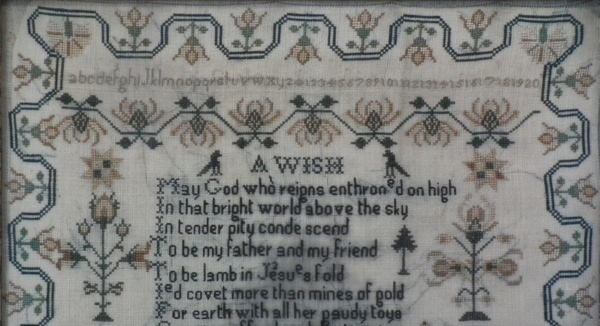 abcdefghiJklmnopqrstuvwxyz 1234567891011121314151617181920
A WISH
May God who reigns enthroned on high
In that bright world above the sky
In tender pity conde scend
To be my father and my friend
To be lamb in Jesues fold
I'ed covet more than mines of gold
For earth with all her gaudy toys